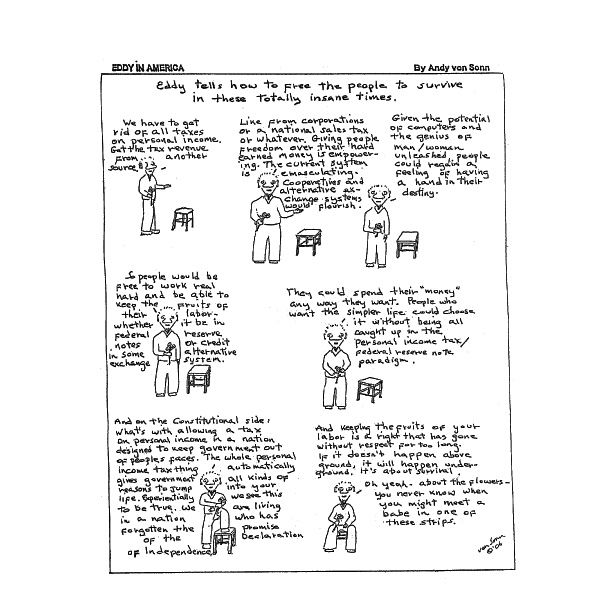 EDDY IN AMERICA
By Andy von Sonn
Eddy tells how to free the people to survive
in these totally insane times.
We have to get
rid of all taxes
on personal income.
Get the tax revenue
from another
source.
Like from corporations
or a national sales tax
or whatever. Giving people
freedom over their hard
earned money is empower-
ing. The current system
is emasculating.
Cooperatives and
alternative ex-
change systems
would flourish.
Given the potential
of computers and
the genius of
man/woman
unleashed, people
could regain a
feeling of having
a hand in their
destiny.
So people would be
free to work real
hard and be able to
keep the fruits of
their labor-
whether it be in
federal reserve
notes or credit
in some alternative
exchange system.
They could spend their "money"
any way they want. People who
want the simpler life could choose
it without being all
caught up in the
personal income tax/
federal reserve note
paradigm.
And on the Constitutional side:
What's with allowing a tax
on personal income in a nation
designed to keep government out
of peoples faces. The whole personal
income tax thing automatically
gives government all kinds of
reasons to jump into your
life. Experientially we see this
to be true. We are living
in a nation who has
forgotten the promise
of the Declaration
of Independence
And keeping the fruits of your
labor is a right that has gone
without respect for too long.
If it doesn't happen above
ground, it will happen under-
ground. It's about survival.
Oh yeah - about the flowers-
you never know when
you might meet a
babe in one of
these strips.
von Sonn
©'06